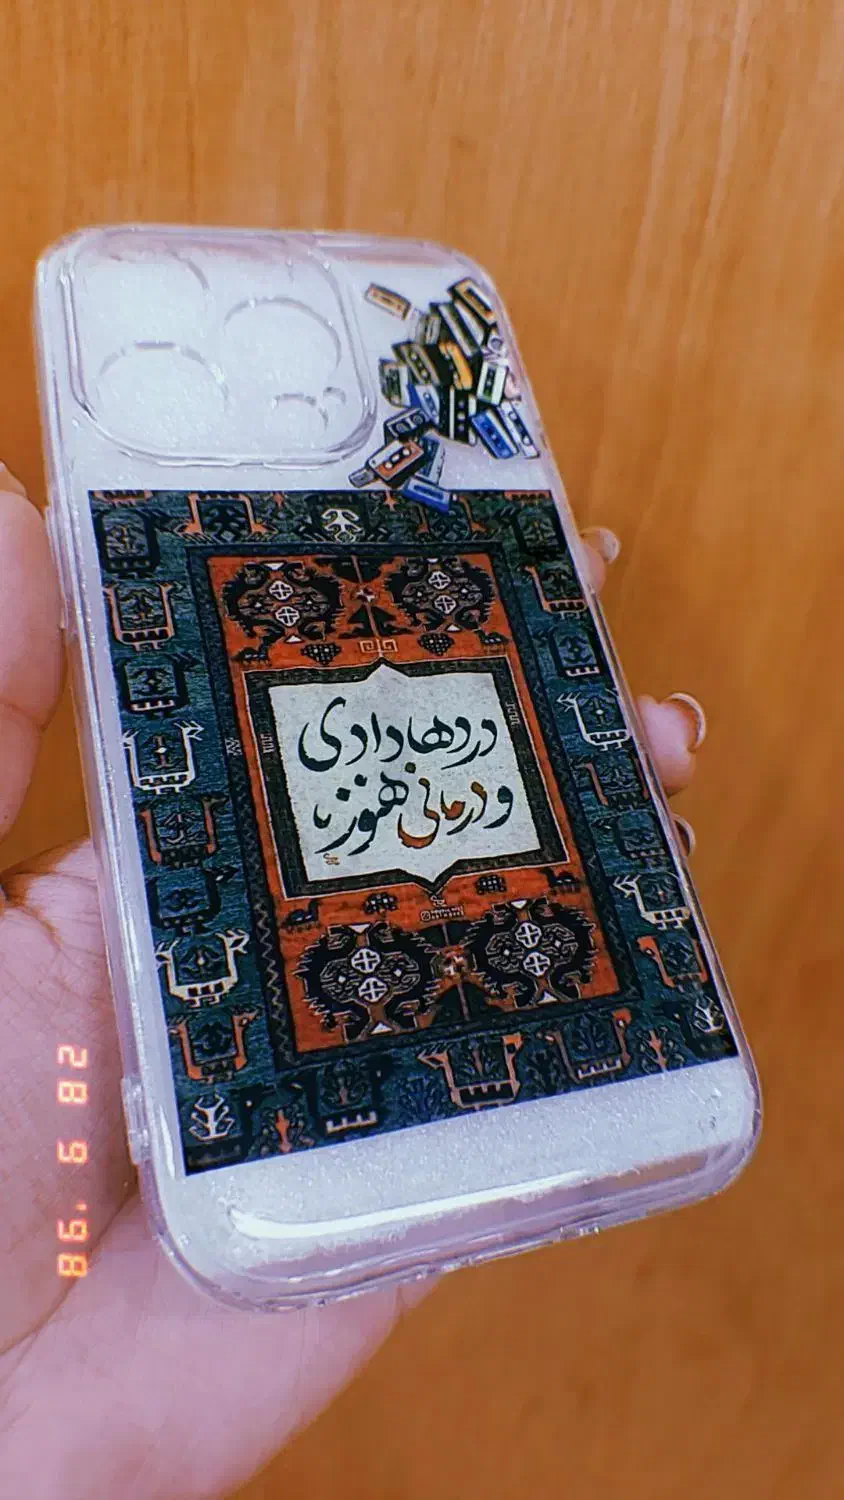 دردها دادی
و درمانی هنوز
86. 6 82